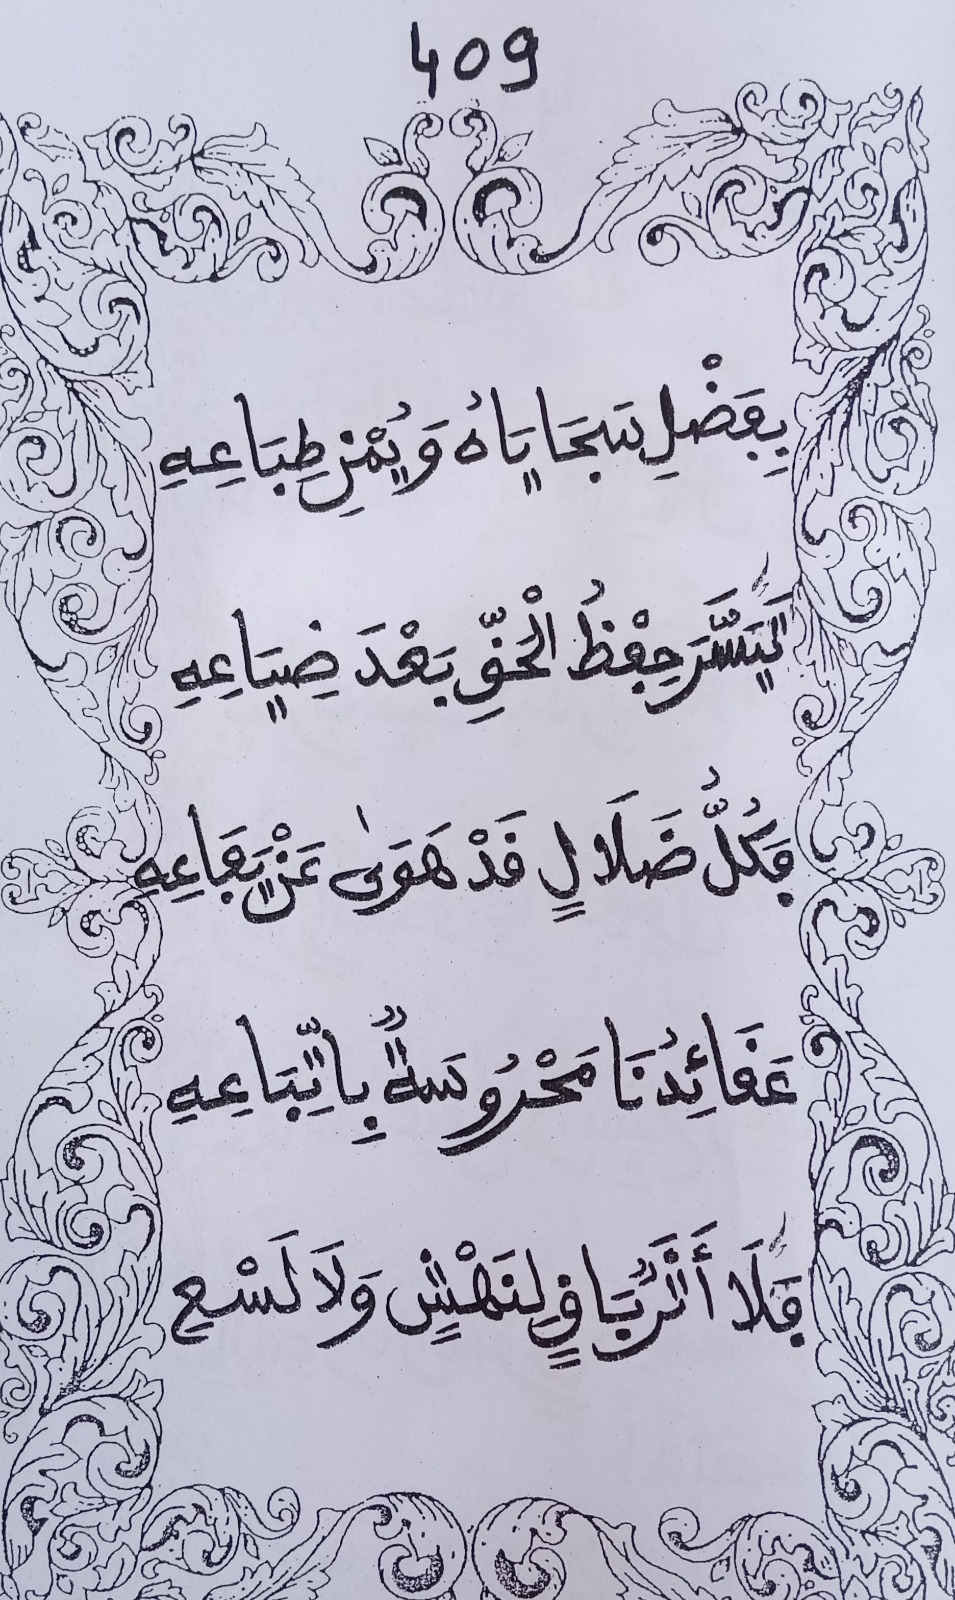 409
بِفَضْلِ سَجَايَاهُ وَيُمْنِ طِبَاعِهِ
تَيَسَّرَ حِفْظُ الْحَقِّ بَعْدَ ضِيَاعِهِ
فَكُلُّ ضَلَالٍ قَدْ هَوَىٰ عَنْ يَفَاعِهِ
عَقَائِدُنَا مَحْرُوسَةٌ بِاتِّبَاعِهِ
فَلَا أَثَرٌ بَاقٍ لِنَهْشٍ وَلَا لَسْعِ